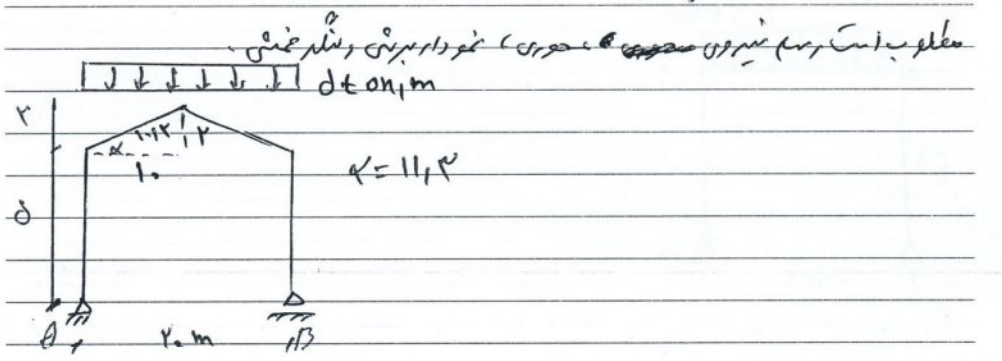 مطلوب است رسم نیروی محوری، نمودار برشی و لنگر خمشی.
۵ton/m
۲
α ۱۰،۲ ۲
۱۰
α = ۱۱,۳
۵
A ۲۰m B